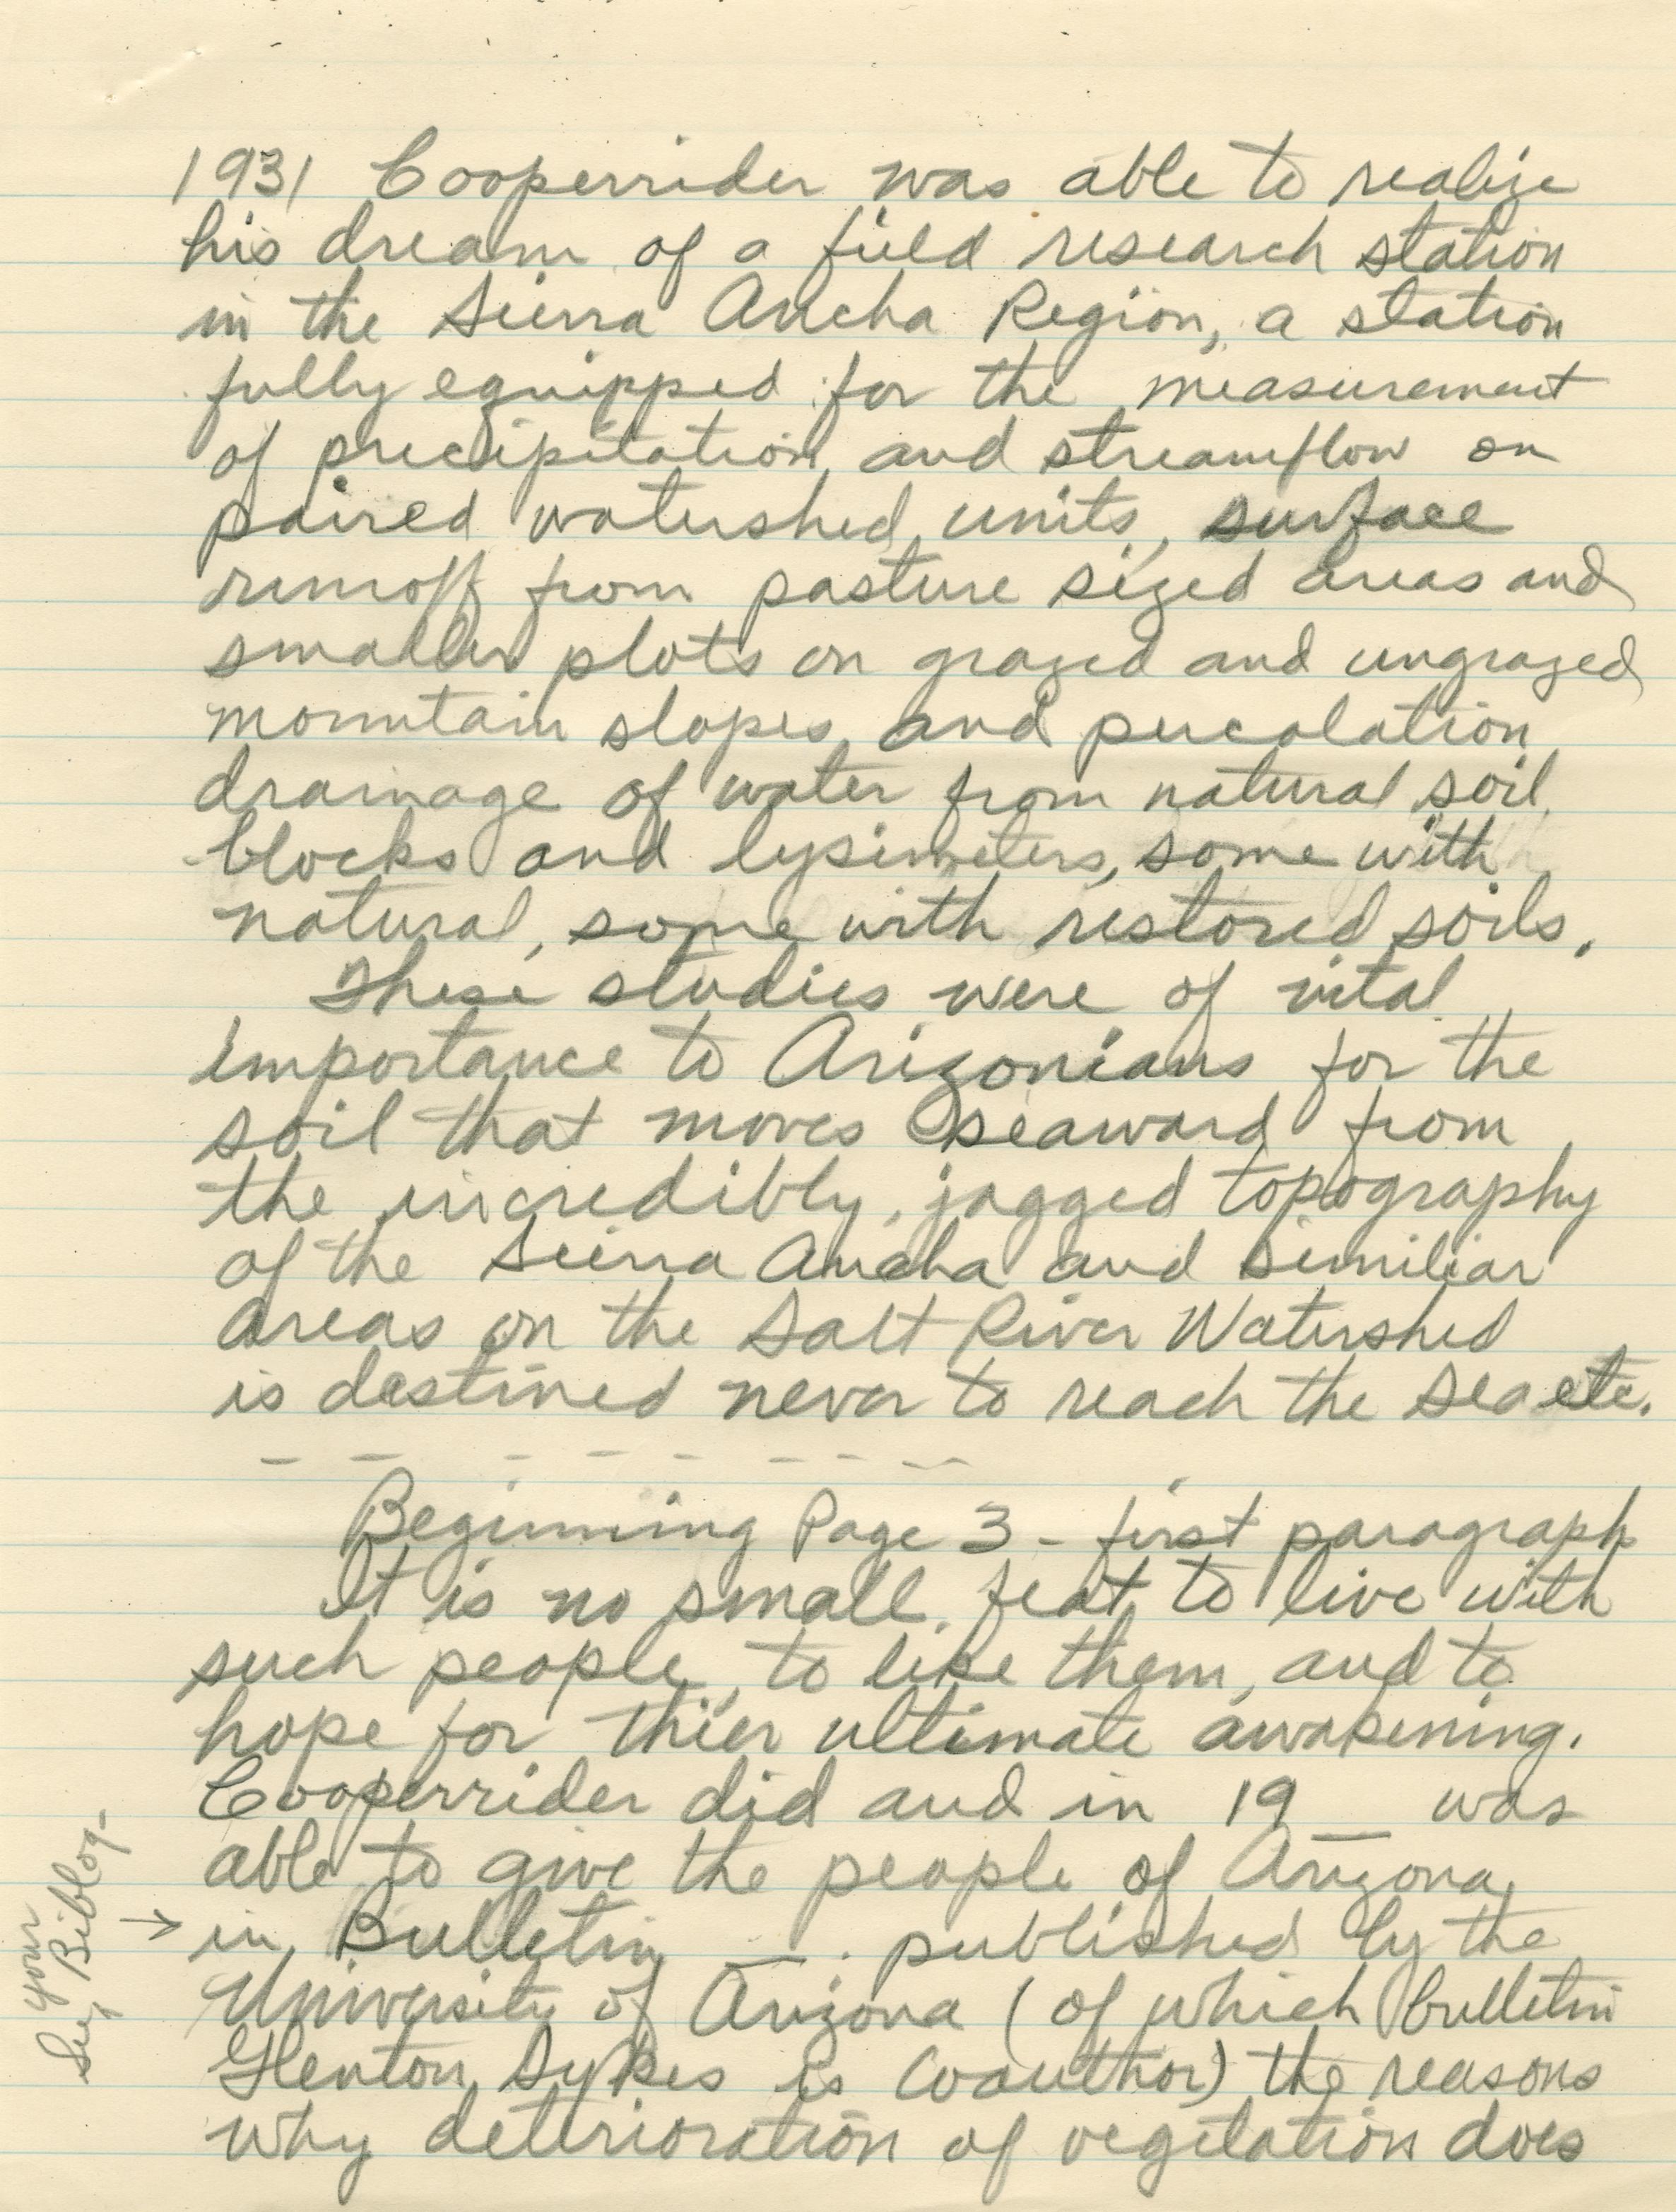 1931 Cooperrider was able to realize
his dream of a field research station
in the Sierra Ancha Region, a station
fully equipped for the measurement
of precipitation, and streamflow on
paired watershed units, surface
runoff from pasture sized areas and
smaller plots on grazed and ungrazed
mountain slopes, and percolation
drainage of water from natural soil
blocks and lysimeters, some with
natural, some with restored soils.
These studies were of vital
importance to Arizonians for the
soil that moves seaward from
the incredibly jagged topography
of the Sierra Ancha and similiar
areas on the Salt River Watershed
is destined never to reach the sea etc.
Beginning Page 3 - first paragraph
It is no small feat to live with
such people, to like them, and to
hope for thier ultimate awakening.
Cooperrider did and in 19__ was
able to give the people of Arizona,
in Bulletin __. published by the
University of Arizona (of which bulletin
Glenton Sykes is Coauthor) the reasons
why detterioration of vegitation does
See your Bibliog- →